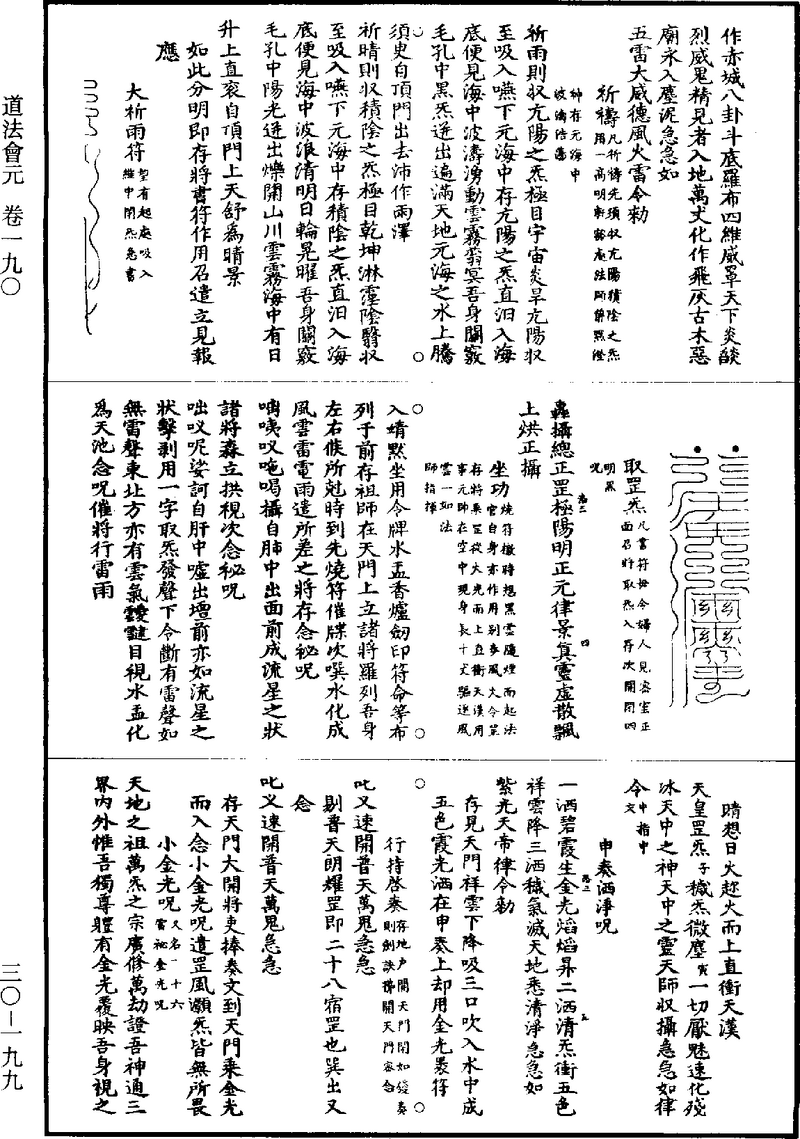 道法會元　卷一九〇
三〇—一九九
作赤城八卦斗底羅布四維威罩天下炎燄
烈威鬼精見者入地萬丈化作飛灰古木惡
廟永入塵泥急急如
五雷大威德風火雷令勑
祈禱
凡祈禱先須收亢陽積陰之炁
用一高明
澄
神存元海中
波濤浩蕩
祈雨則收亢陽之炁極目宇宙炎旱亢陽収
至吸入嚥下元海中存亢陽之炁直汩入海
底便見海中波濤湧動雲霧蓊冥吾身關竅
毛孔中黑炁迸出遍滿天地元海之水上騰
須臾自頂門出去沛作雨澤
祈晴則収積陰之炁極目乾坤淋霪陰翳収
至吸入嚥下元海中存積陰之炁直汩入海
底便見海中波浪清明日輪晃曜吾身關竅
毛孔中陽光迸出爍開山川雲霧海中有日
升上直衮自頂門上天舒為晴景
如此分明即存將書符作用召遣立見報
應
大祈雨符
望有起處吸入
雄中閉炁急書
取罡炁
凡書符毋令婦人見密室正
面召將取炁入存次開閉四
明黑
咒
轟攝總正罡極陽明正元律景真靈虛散飄
上烘正攝
坐功
燒符檄時想黑雲隨煙而起法
官自身亦作用別步風火令罡
存將乘罡從火光而上直衝天漢用
事元帥在空中現身長十丈驅逐風
雲一如法
師指揮
入靖默坐用令牌水盂香爐劒印符命等布
列于前存祖師在天門上立諸將羅列吾身
左右候所尅時到先燒符催牒次噀水化成
風雲雷電雨遣所差之將存念秘呪
嘀咦㕚唵喝攝自肺中出面前成流星之狀
諸將森立拱視次念秘呪
咄㕚呢娑訶自肝中噓出壇前亦如流星之
狀擊剥用一字取炁發聲下令斷有雷聲如
無雷聲東北方亦有雲氣靉靆目視水盂化
爲天池念呪催將行雷雨
晴想日火趂火而上直衝天漢
天皇罡炁子穢炁微塵寅一切厭魅速化殘
冰天中之神天中之靈天師収攝急急如律
令中指中文
申奏洒淨呪
一洒碧霞生金光熖熖昇二洒清炁街五色
祥雲降三洒穢氣滅天地悉清淨急急如
紫光天帝律令勑
存見天門祥雲下降吸三口吹入水中成
五色霞光洒在申奏上却用金光罡符
行持啓奏
存地户開天門閉如發奏
則劍訣擇開天門密念
叱义速開普天萬鬼急急
剔普天朗耀罡即二十八宿罡也巽出又
念
叱义速開普天萬鬼急急
存天門大開將吏捧奏文到天門乘金光
而入念小金光呪遣罡風灝炁皆無所畏
小金光呪
又名一十六
雷祕金光呪
天地之祖萬炁之宗廣修萬劫證吾神通三
界內外惟吾獨尊軆有金光覆映吾身視之